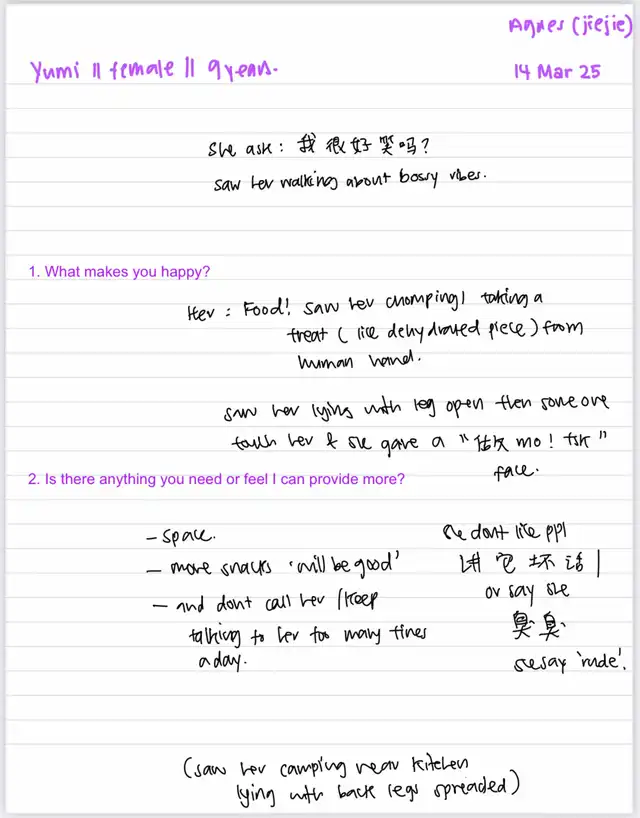 Agnes (jiejie)
Yumi || female || 9 years.
14 Mar 25
She ask: 我很好笑吗?
saw her walking about bossy vibes.
1. What makes you happy?
Her: Food! saw her chomping/ taking a
treat (like dehydrated piece) from
human hand.
saw her lying with leg open then someone
touch her & she gave a "做 mo! tsk"
face.
2. Is there anything you need or feel I can provide more?
- space.
- more snacks 'will be good'
- and dont call her /keep
talking to her too many times
a day.
she dont like ppl
讲它坏话/
or say she
臭臭
she say 'rude'.
(saw her camping near kitchen
lying with back legs spreaded)